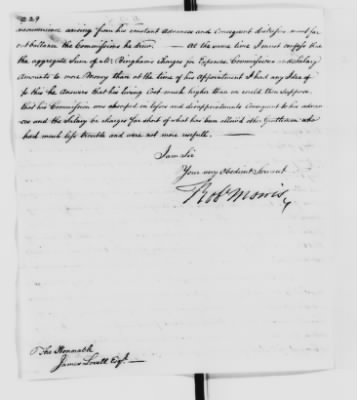 229
inconvenience arising from his constant Advances and Consequent distresses must far
outballance the Commissions he drew. — At the same time I must confess that
the aggregate Sum of Mr Binghams Charges for Expences Commissions and Salary
Amounts to more Money than at the time of his Appointment I had any Idea of
to this he Answers that his living Cost much higher than we could then suppose
that his Commissions were absorbed in losses and disappointments Consequent to his advan-
ces and the Salary he charges far short of what has been allowed other Gentlemen who
had much less trouble and were not more usefull. —
I am Sir
Your very Obedient Servant
Rob Morris
The Honorable
James Lovell Esqr.